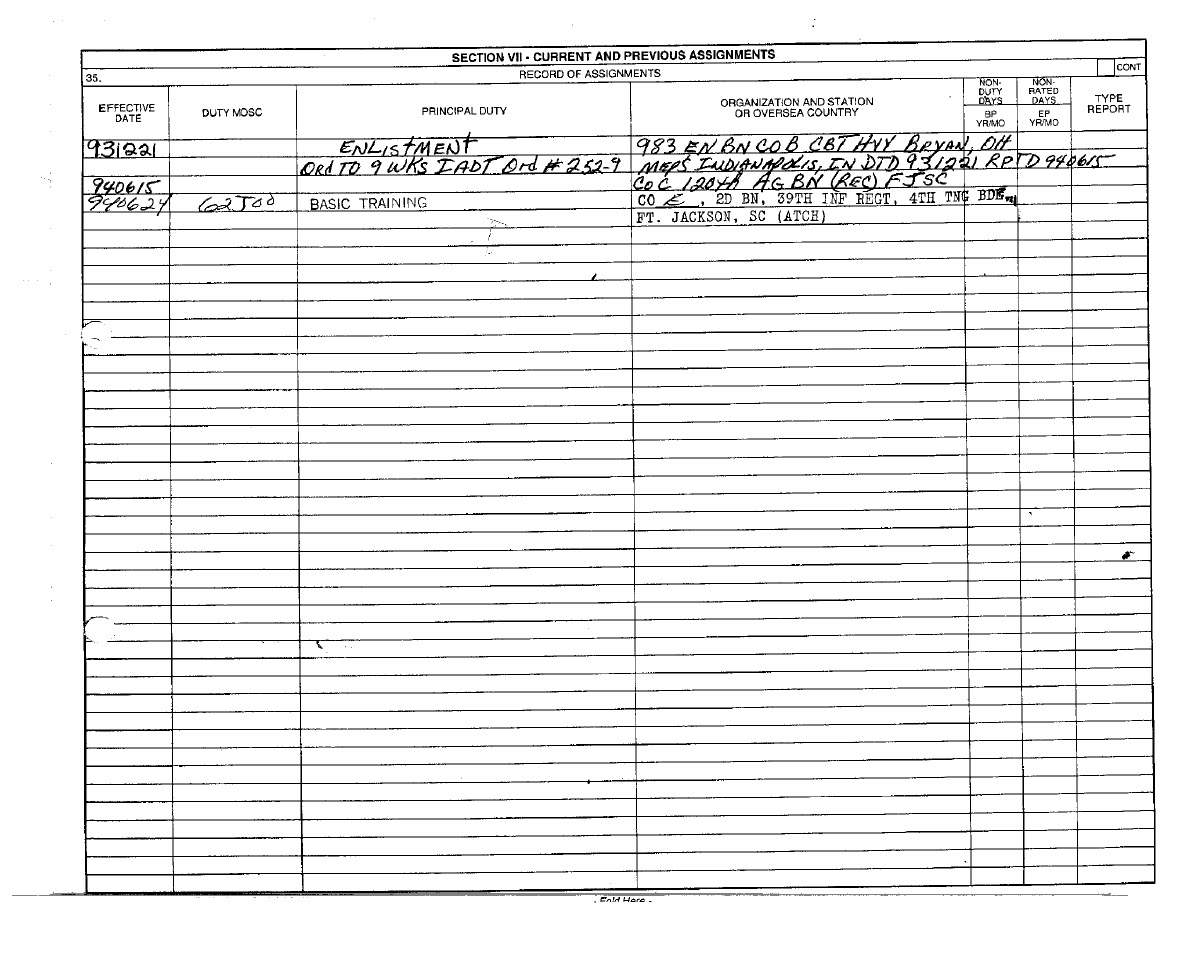 SECTION VII - CURRENT AND PREVIOUS ASSIGNMENTS
35. RECORD OF ASSIGNMENTS CONT
EFFECTIVE DATE DUTY MOSC PRINCIPAL DUTY ORGANIZATION AND STATION OR OVERSEA COUNTRY NON-DUTY DAYS BP YR/MO NON-RATED DAYS EP YR/MO TYPE REPORT
931221 ENLISTMENT 983 EN BN CO B CBT HVY BRYAN, OH
Ord TO 9 WKS IADT Ord # 252-9 MEPS INDIANAPOLIS, IN DTD 931221 RPTD 940615
940615 CO C 120th AG BN (REC) FJSC
940624 62J00 BASIC TRAINING CO E , 2D BN, 39TH INF REGT, 4TH TNG BDE
FT. JACKSON, SC (ATCH)
- Fold Here -